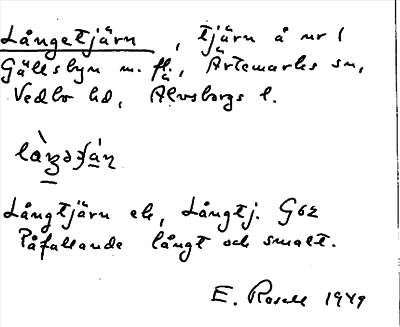 Långetjärn, tjärn å nr 1
Gällsbyn m. fl., Ärtemarks sn,
Vedbo hd, Älvsborgs l.
Långtjärn ek, Långtj. G62
Påfallande långt och smalt.
E. Rosell 1949